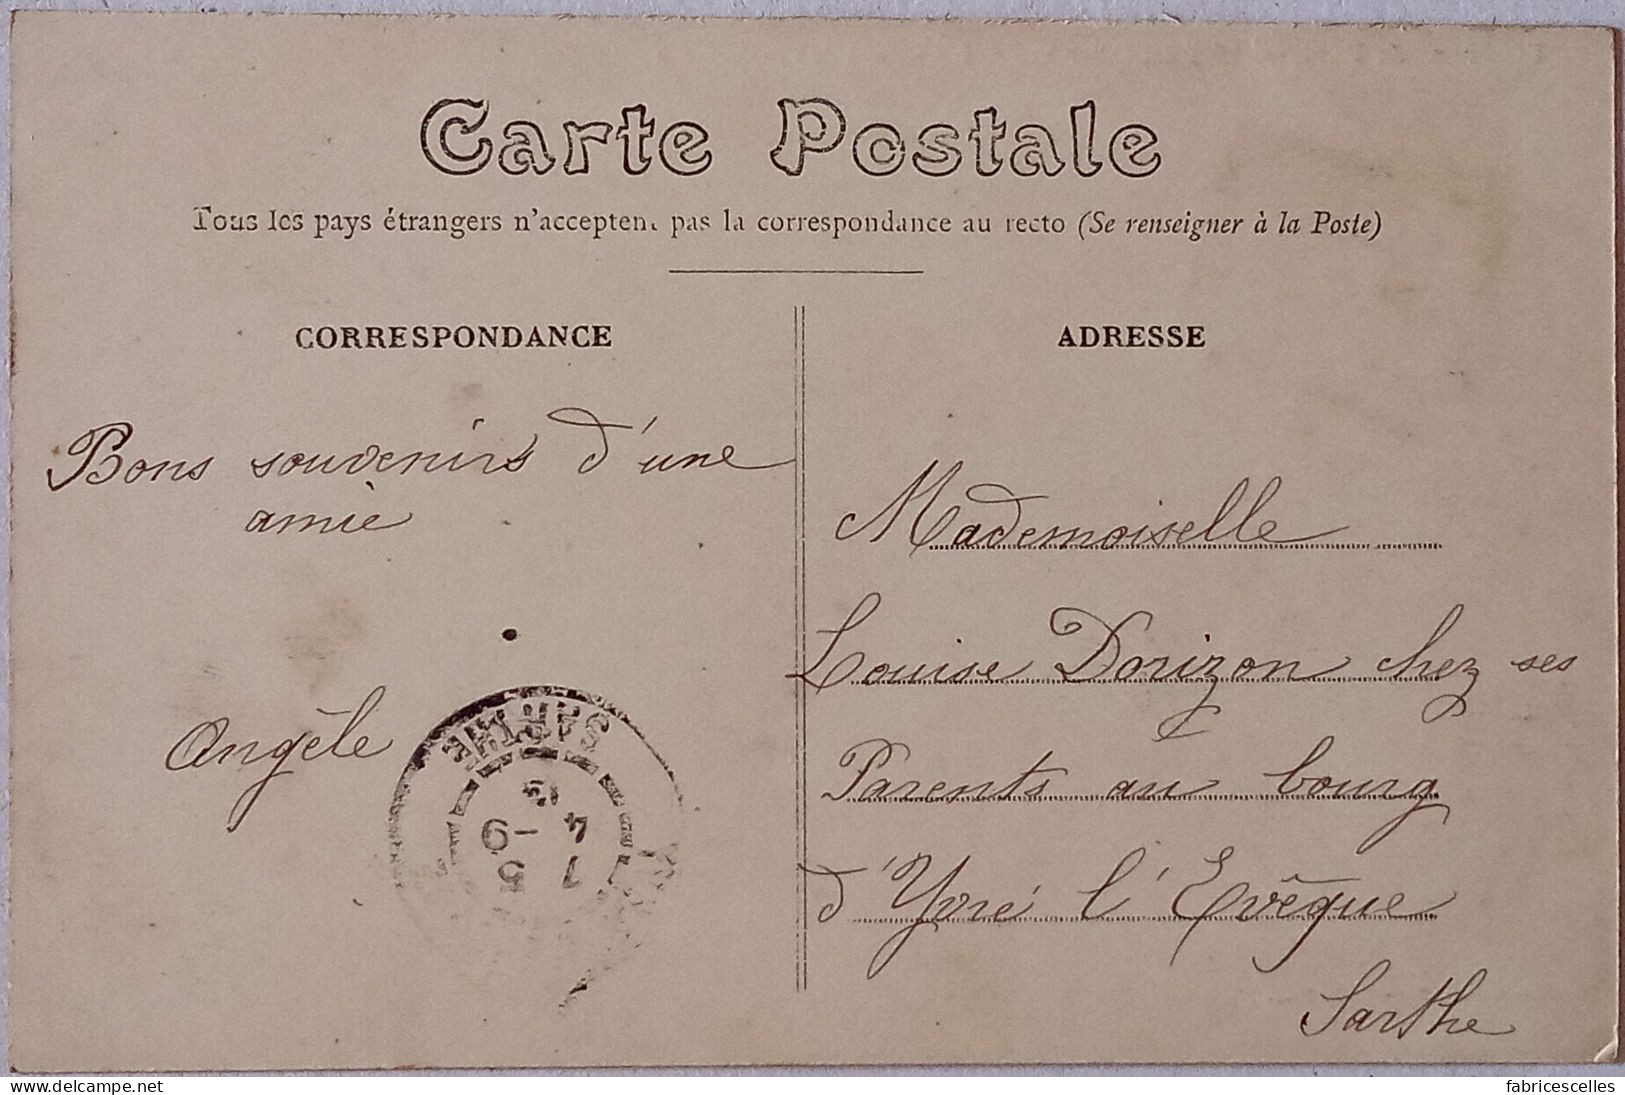 Carte Postale
Tous les pays étrangers n'acceptent pas la correspondance au recto (Se renseigner à la Poste)
CORRESPONDANCE
Bons souvenirs d'une
amie
Angèle
SARTHE
ADRESSE
Mademoiselle
Louise Dorizon chez ses
Parents au bourg
d'Yvré l'Evêque
Sarthe
delcampe.net
fabricescelles